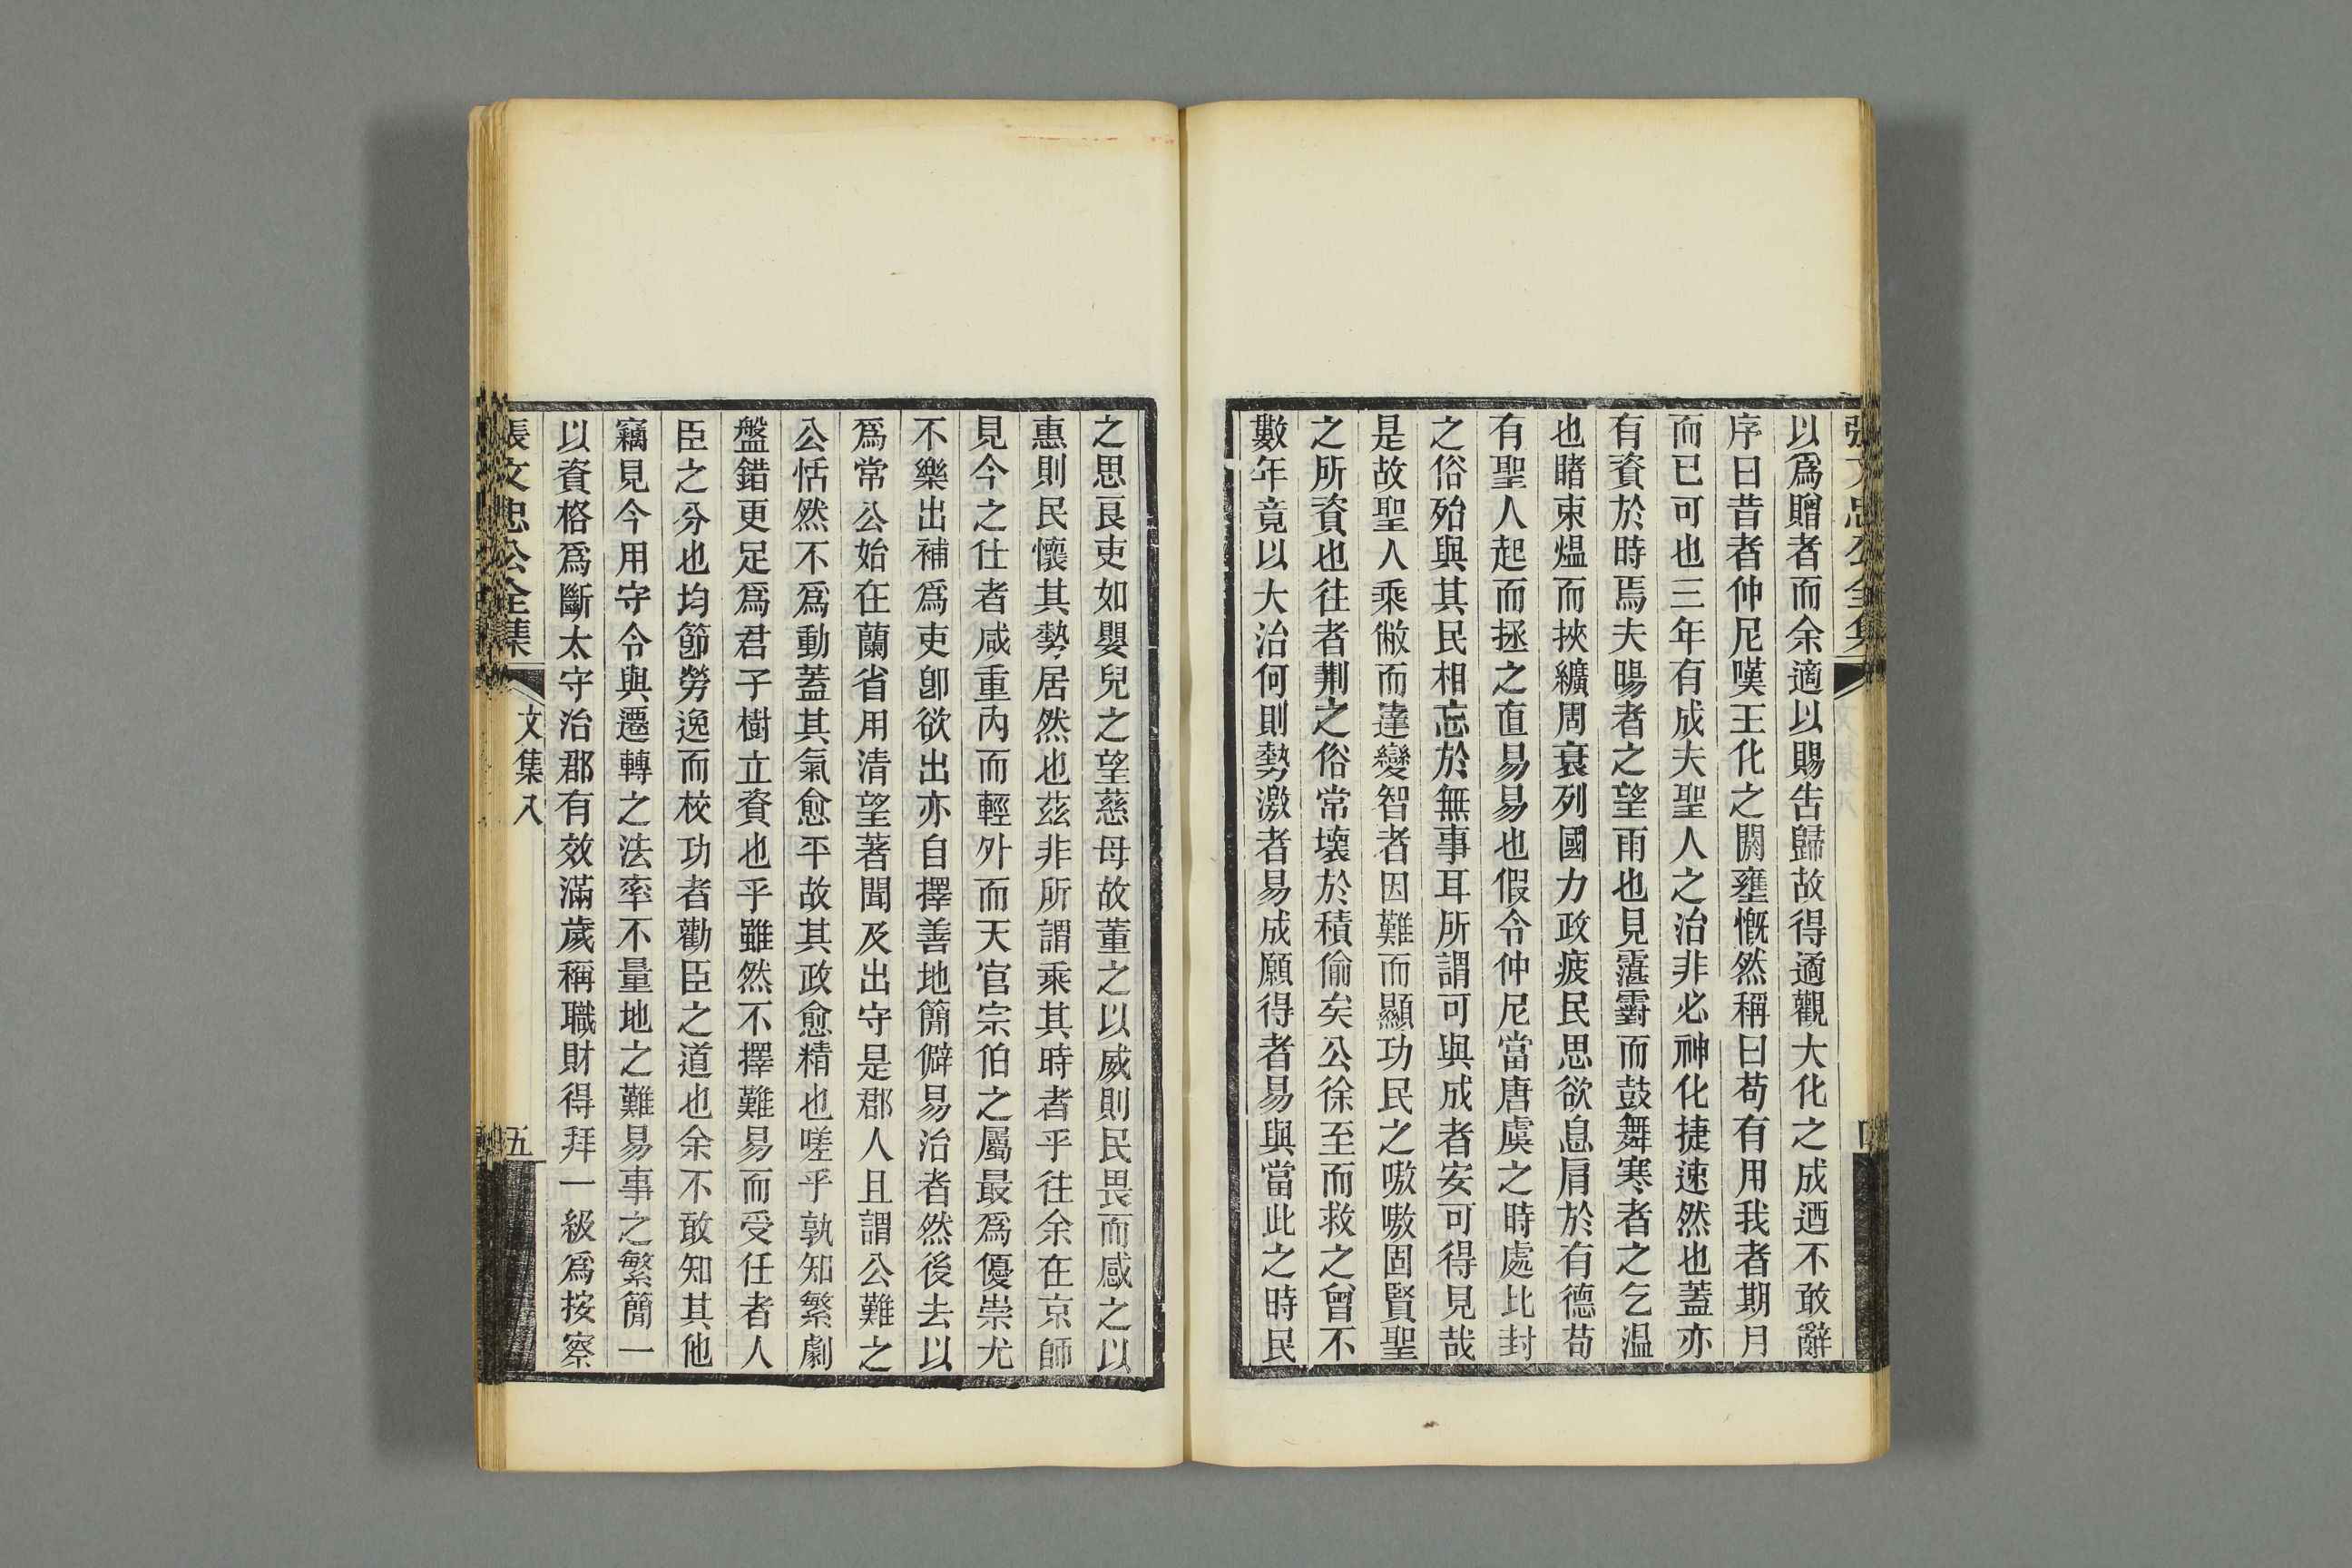 以爲贈者而余適以賜告歸故得遹觀大化之成迺不敢辭
序曰昔者仲尼嘆王化之閼壅慨然稱曰苟有用我者期月
而已可也三年有成夫聖人之治非必神化捷速然也蓋亦
有資於時焉夫暍者之望雨也見霮䨴而鼓舞寒者之乞温
也睹束熅而挾纊周衰列國力政疲民思欲息肩於有德苟
有聖人起而拯之直易易也假令仲尼當唐虞之時處比封
之俗殆與其民相忘於無事耳所謂可與成者安可得見哉
是故聖人乘僌而達變智者因難而顯功民之嗷嗷固賢聖
之所資也往者荆之俗常壞於積偷矣公徐至而救之曾不
數年竟以大治何則勢激者易成願得者易與當此之時民
之思良吏如嬰兒之望慈母故董之以威則民畏而感之以
惠則民懷其勢居然也玆非所謂乘其時者乎往余在京師
見今之仕者咸重內而輕外而天官宗伯之屬最爲優崇尤
不樂出補爲吏卽欲出亦自擇善地簡僻易治者然後去以
爲常公始在蘭省用清望著聞及出守是郡人且謂公難之
公恬然不爲動蓋其氣愈平故其政愈精也嗟乎孰知繁劇
盤錯更足爲君子樹立資也乎雖然不擇難易而受任者人
臣之分也均節勞逸而校功者勸臣之道也余不敢知其他
竊見今用守令與遷轉之法率不量地之難易事之繁簡一
以資格爲斷太守治郡有效滿歲稱職財得拜一級爲按察
張文忠公全集
文集八
五